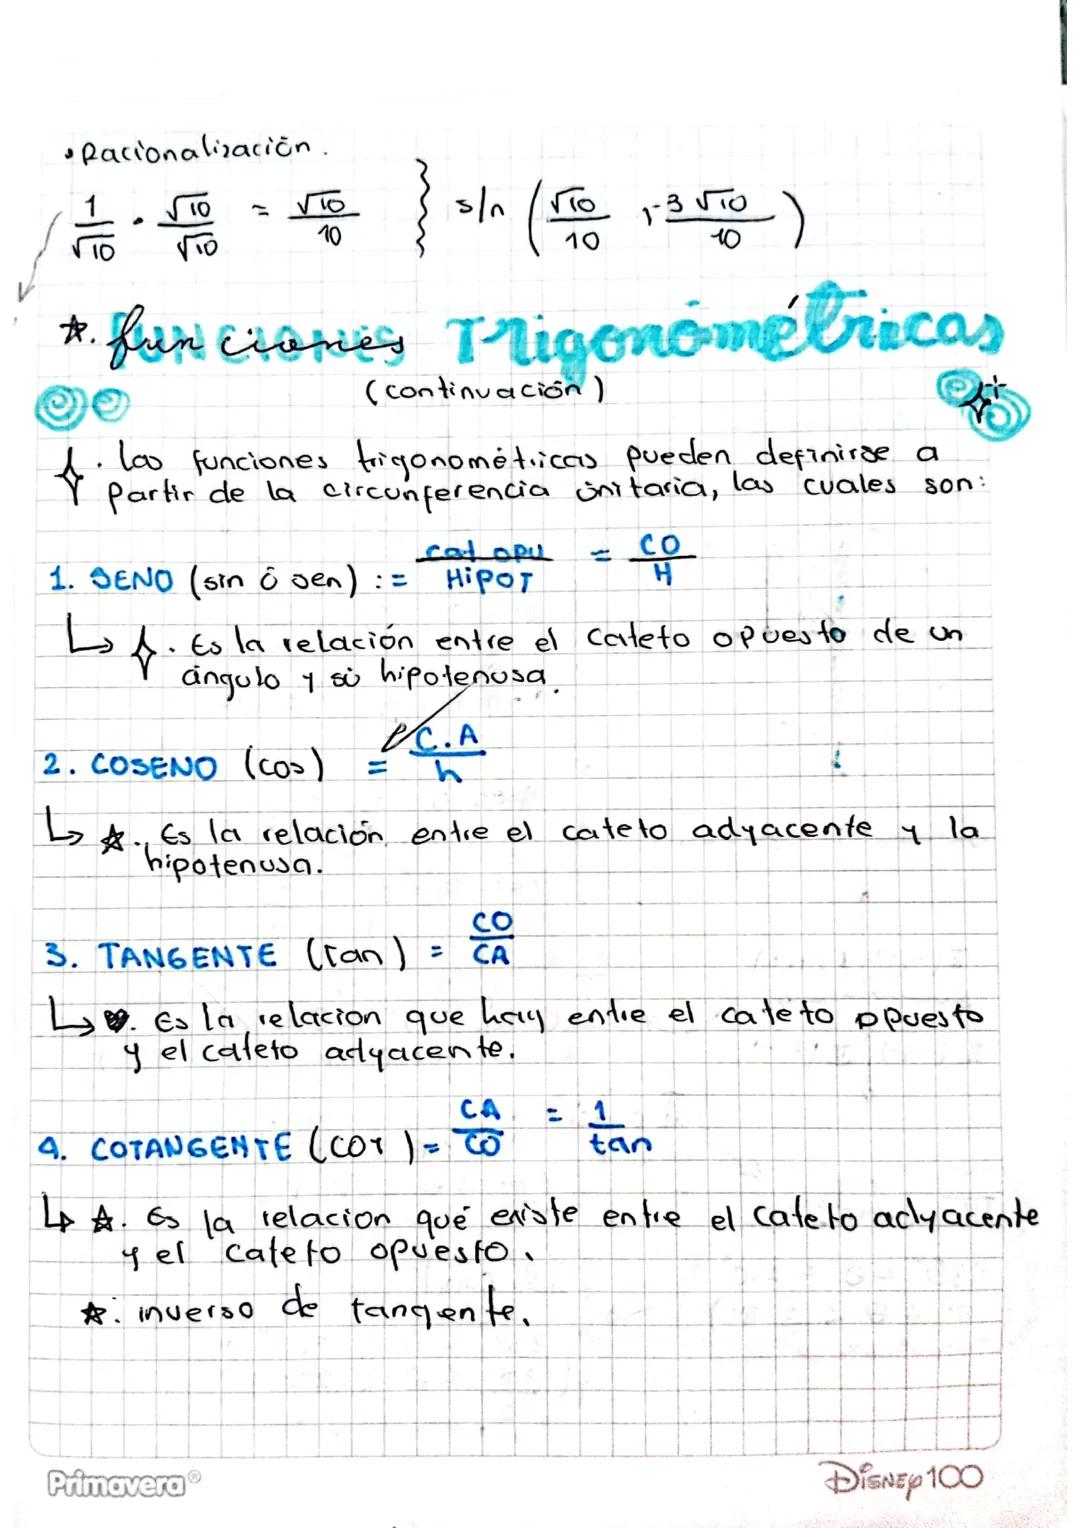 • Racionalización.
1/√10 · √10/√10 = √10/10 } s/n (√10/10 , -3√10/10)
☆. funciones Trigonométricas
(continuación)
. Las funciones trigonométricas pueden definirse a
partir de la circunferencia únitaria, las cuales son:
1. SENO (sin ó sen) := cat opu/HIPOT = CO/H
↳ . Es la relación entre el cateto opuesto de un
ángulo y su hipotenusa
2. COSENO (cos) = C.A/h
↳ ☆. Es la relación entre el cateto adyacente y la
hipotenusa.
3. TANGENTE (Tan) = CO/CA
↳ ♥. Es la relacion que hay entre el cateto opuesto
y el cateto adyacente.
4. COTANGENTE (COT) = CA/CO = 1/tan
↳ ☆. Es la relacion qué existe entre el cateto adyacente
y el cateto opuesto.
☆. inverso de tangente.
Primavera®
Disney100